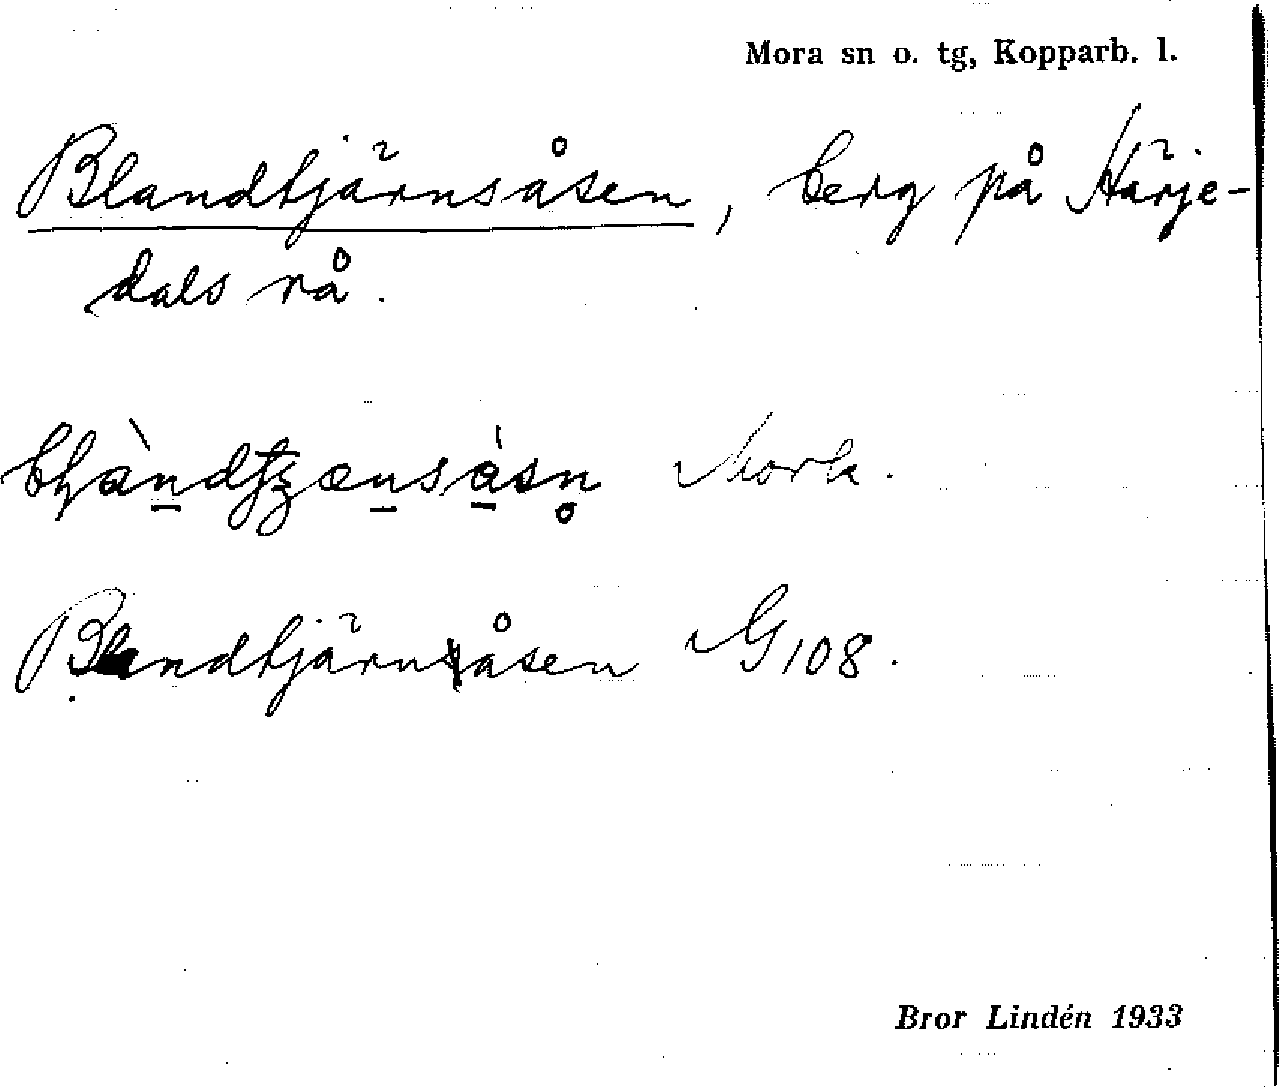 Mora sn o. tg, Kopparb. l.
Blandtjärnsåsen, berg på Härje-
dals rå.
Mork.
Blandtjärnsåsen G 108.
Bror Lindén 1933